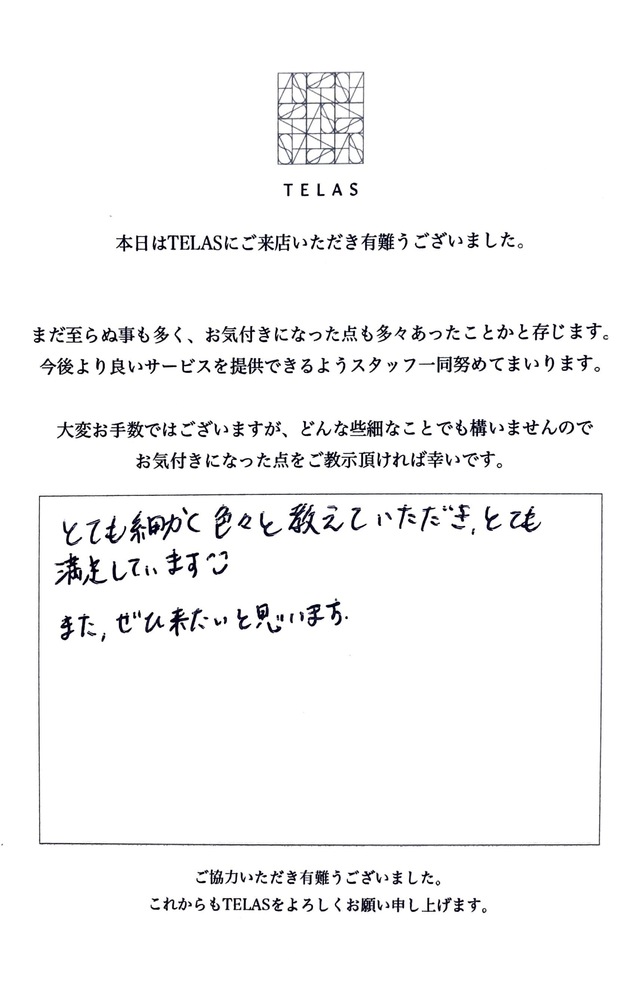 TELAS
本日はTELASにご来店いただき有難うございました。
まだ至らぬ事も多く、お気付きになった点も多々あったことかと存じます。
今後より良いサービスを提供できるようスタッフ一同努めてまいります。
大変お手数ではございますが、どんな些細なことでも構いませんので
お気付きになった点をご教示頂ければ幸いです。
とても細かく色々と教えていただき、とても
満足しています
また、ぜひ来たいと思います。
ご協力いただき有難うございました。
これからもTELASをよろしくお願い申し上げます。